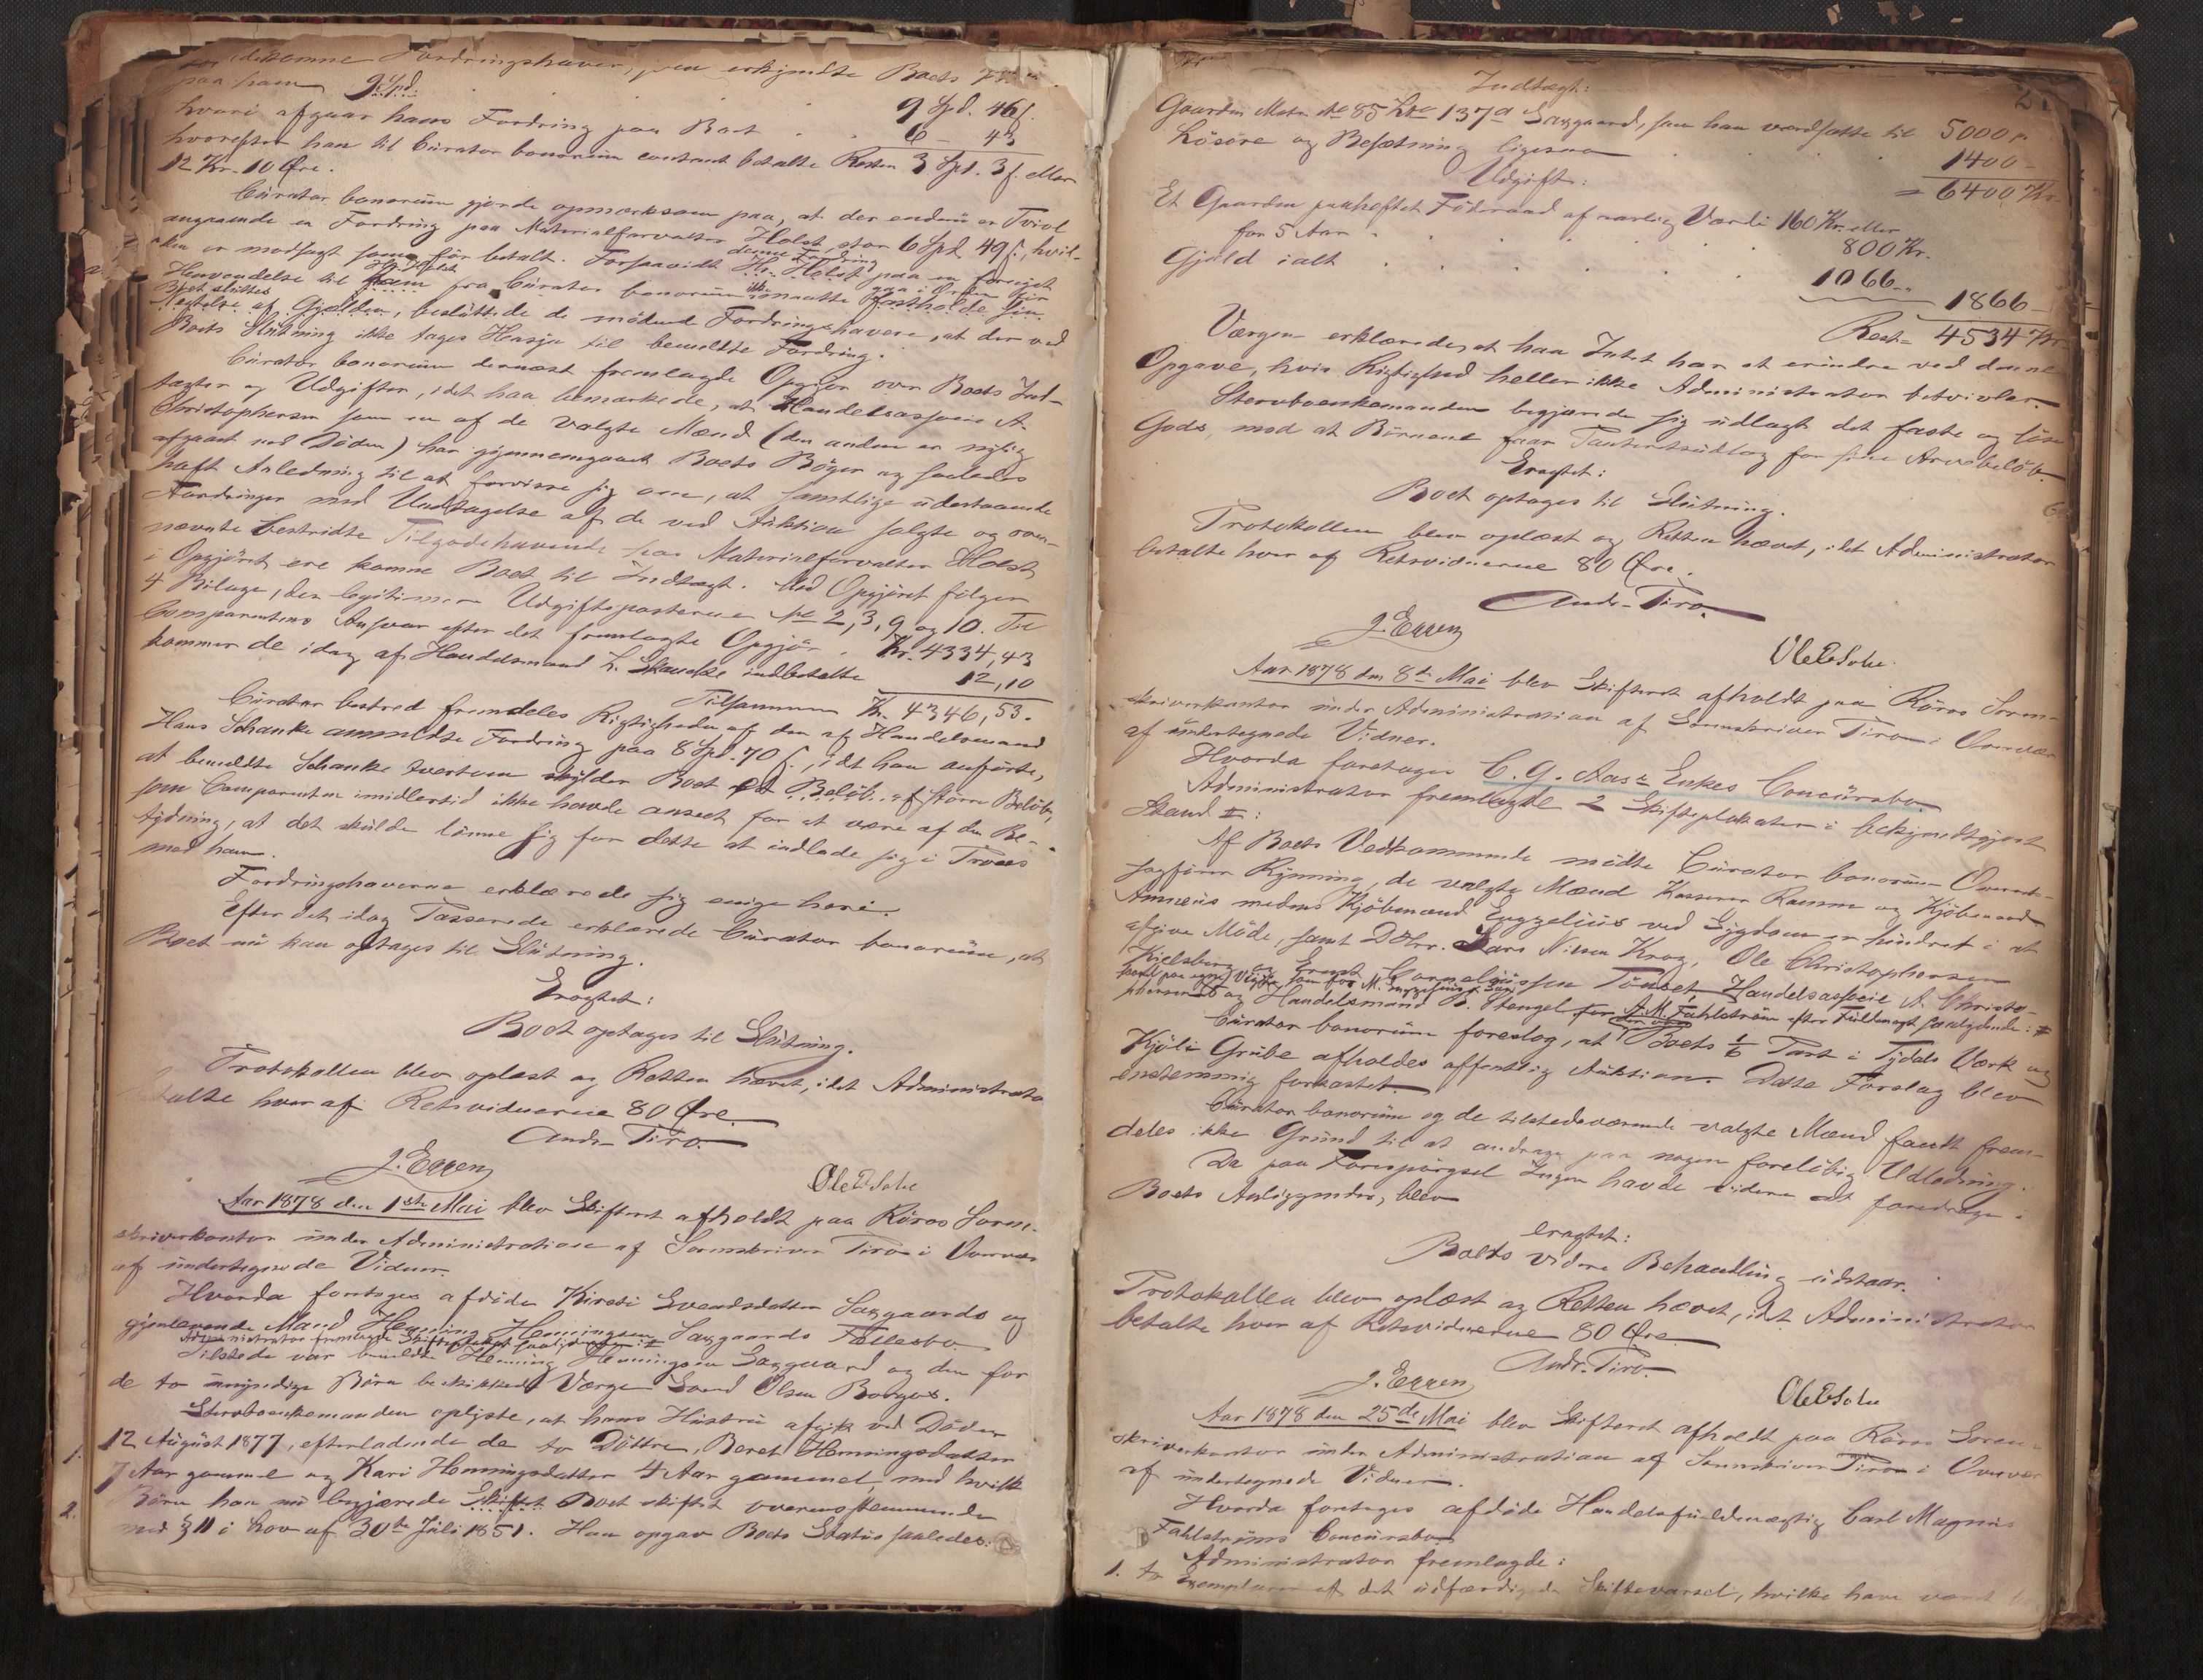 idekomne Fordringshaver, men erkjendte Boets
paa ham 9 Spd. . . . 9 Spd. 46 ʃ.
hvori afgaar hans Fordring paa Boet . . 6 – 43
hvorefter han til Curator bonorum contant betalte Resten 3 Spd. 3 ʃ. eller
12 Kr. 10 Øre.
Curator bonorum gjorde opmærksom paa, at der endnu er Tvivl
angaaende en Fordring paa Materialforvalter Holst, stor 6 Spd. 49 ʃ., hvil-
ken er modsagt som før betalt. Forsaavidt denne Fordring Hr. Holst paa en fornyet
Henvendelse til Hr. Holst ham fra Curator bonorum ikke maatte gaa i Orden før fastholde sin
Boet sluttes Negtelse af Gjælden, besluttede de mødende Fordringshavere, at der ved
Boets Slutning ikke tages Hensyn til bemeldte Fordring.
Curator bonorum dernæst fremlagde Opgjør over Boets Ind-
tægter og Udgifter, idet han bemærkede, at Handelsassocie A.
Christophersen som en af de valgte Mænd (den anden er nylig
afgaaet ved Døden) har gjennemgaaet Boets Bøger og saaledes
haft Anledning til at forvisse sig om, at samtlige udestaaende
Fordringer med Undtagelse af de ved Auktion solgte og oven-
nævnte bestridte Tilgodehavende hos Materialforvalter Holst
i Opgjøret ere komne Boet til Indtægt. Med Opgjøret følger
4 Bilage, der legitimerer Udgiftsposterne No 2, 3, 9 og 10. Til
Comparentens Ansvar efter det fremlagte Opgjør . Kr. 4334,43
kommer de idag af Handelsmand H. Skancke indbetalte 12,10
Tilsammen Kr. 4346,53.
Curator bestred fremdeles Rigtigheden af den af Handelsmand
Hans Schanke anmeldte Fordring paa 8 Spd. 70 ʃ., idet han anførte,
at bemeldte Schanke tvertom skylder Boet et Beløb af større Beløb,
som Comparenten imidlertid ikke havde anseet for at være af den Be-
tydning, at det skulde lønne sig for dette at indlade sig i Proces
med ham.
Fordringshaverne erklærede sig enige heri.
Efter det idag Passerede erklærede Curator bonorum, at
Boet nu kan optages til Slutning.
Eragtet:
Boet optages til Slutning.
Protokollen blev oplæst og Retten hævet, idet Administrator
betalte hver af Retsvidnerne 80 Øre.
Andr. Tiro.
J. Eggen
Ole E Solie
Aar 1878 den 1ste Mai blev Skifteret afholdt paa Røros Soren-
skriverkontor under Administration af Sorenskriver Tiro i Overvær
af undertegnede Vidner.
Hvorda foretoges afdøde Kirsti Svendsdatter Saxgaards og
gjenlevende Mand Henning Henningsen Saxgaards Fællesbo.
Administrator fremlagde
Tilstede var bemeldte Henning Henningsen Saxgaard og den for
de to umyndige Børn beskikkede Værge Svend Olsen Borgos.
Stervboenkemanden oplyste, at hans Hustru afgik ved Døden
1. 12 August 1877, efterladende de to Døttre, Beret Henningsdatter
7 Aar gammel og Kari Henningsdatter 4 Aar gammel, med hvilke
2. Børn han nu begjærede Skiftet Boet skiftet overensstemmende
med § 11 i Lov af 30te Juli 1851. Han opgav Boets Status saaledes:
2
Indtægt:
Gaarden Matr. No 85 Lno 137a Saxgaard, som han værdsatte til 5000 „
Løsøre og Besætning ligesaa . . . 1400 –
= 6400 Kr.
Udgift:
Et Gaarden paaheftet Føderaad af aarlig Værdi 160 Kr. eller
for 5 Aar . . . . . 800 Kr.
Gjæld ialt . . . . . 1066 „ 1866 –
Rest = 4534 Kr
Værgen erklærede, at han Intet har at erindre ved denne
Opgave, hvis Rigtighed heller ikke Administrator betvivler.
Stervboenkemanden begjærede sig udlagt det faste og løse
Gods, mod at Børnene faar Panteretsudlæg for sine Arvebeløb.
Eragtet:
Boet optages til Slutning.
Protokollen blev oplæst og Retten hævet, idet Administrator
betalte hver af Retsvidnerne 80 Øre.
Andr. Tiro.
J. Eggen
Ole E Solie
Aar 1878 den 8de Mai blev Skifteret afholdt paa Røros Soren-
skriverkontor under Administration af Sorenskriver Tiro i Overvær
af undertegnede Vidner.
Hvorda foretoges C. G. Aas's Enkes Concursbo.
Administrator fremlagde 2 Skifteplakater i bekjendtgjort
Stand II:
Af Boets Vedkommende mødte Curator bonorum Overrets-
sagfører Rynning, de valgte Mænd Kasserer Ramm og Kjøbmand
Amneus medens Kjøbmand Engzelius ved Sygdom er hindret i at
afgive Møde, samt DHrr. Lars Nilsen Krog, Ole Christophersen
Kjelsberg og Ernst Corneliussen Tønset, Handelsassocie A. Christo-
phersen og Handelsmand P. Stengel for A. M. Fahlstrøm efter Fuldmagt saalydende: #
Curator bonorum foreslog, at der over Boets 1/6 Part i Tydals Værk og
Kjøli Grube afholdes offentlig Auktion. Dette Forslag blev
enstemmig forkastet.
Curator bonorum og de tilstedeværende valgte Mænd fandt frem-
deles ikke Grund til at andrage paa nogen foreløbig Udlodning.
Da paa Forespørgsel Ingen havde videre at foredrage i
Boets Anliggender, blev
eragtet:
Boets videre Behandling udstaar.
Protokollen blev oplæst og Retten hævet, idet Administrator
betalte hver af Retsvidnerne 80 Øre.
Andr. Tiro.
J. Eggen
Ole E Solie
Aar 1878 den 25de Mai blev Skifteret afholdt paa Røros Soren-
skriverkontor under Administration af Sorenskriver Tiro i Overvær
af undertegnede Vidner.
Hvorda foretoges afdøde Handelsfuldmægtig Carl Magnus
Fahlstrøms Concursbo.
Administrator fremlagde:
1. to Exemplarer af det udfærdigede Skiftevarsel, hvilke have været